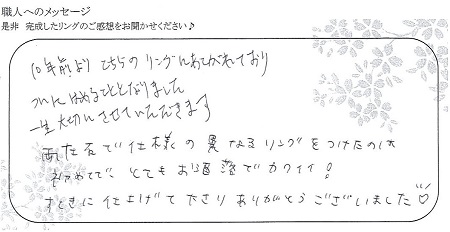 職人へのメッセージ
是非 完成したリングのご感想をお聞かせください♪
10年前より こちらの リングにあこがれており
ついに はめることとなりました
一生大切にさせていただきます
両サイドで仕様の異なるリングをつけたのは
初めてで、とてもお洒落でカワイイ!
すてきに仕上げて下さりありがとうございました♡